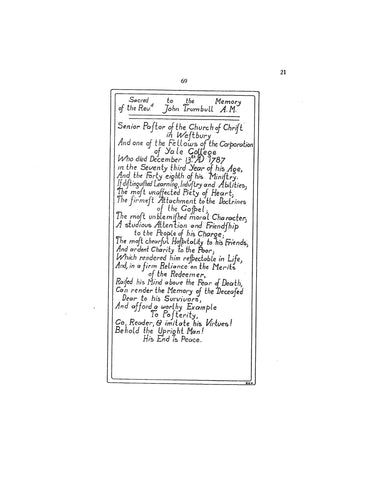 21
69
Sacred to the Memory
of the Rev.d John Trumbull A.M.
Senior Paſtor of the Church of Chriſt
in Weſtbury
And one of the Fellows of the Corporation
of Yale College
Who died December 13th AD 1787
in the Seventy third Year of his Age,
And the Forty eighth of his Miniſtry.
If diſtinguiſhed Learning, Induſtry and Abilities;
The moſt unaffected Piety of Heart,
The firmeſt Attachment to the Doctrines
of the Goſpel;
The moſt unblemiſhed moral Character,
A studious Attention and Friendſhip
to the People of his Charge;
The moſt chearful Hoſpitality to his Friends,
And ardent Charity to the Poor;
Which rendered him reſpectable in Life,
And, in a firm Reliance on the Merits
of the Redeemer,
Raiſed his Mind above the Fear of Death,
Can render the Memory of the Deceaſed
Dear to his Survivors,
And afford a worthy Example
To Poſterity,
Go, Reader, & imitate his Virtues!
Behold the Upright Man!
His End is Peace.